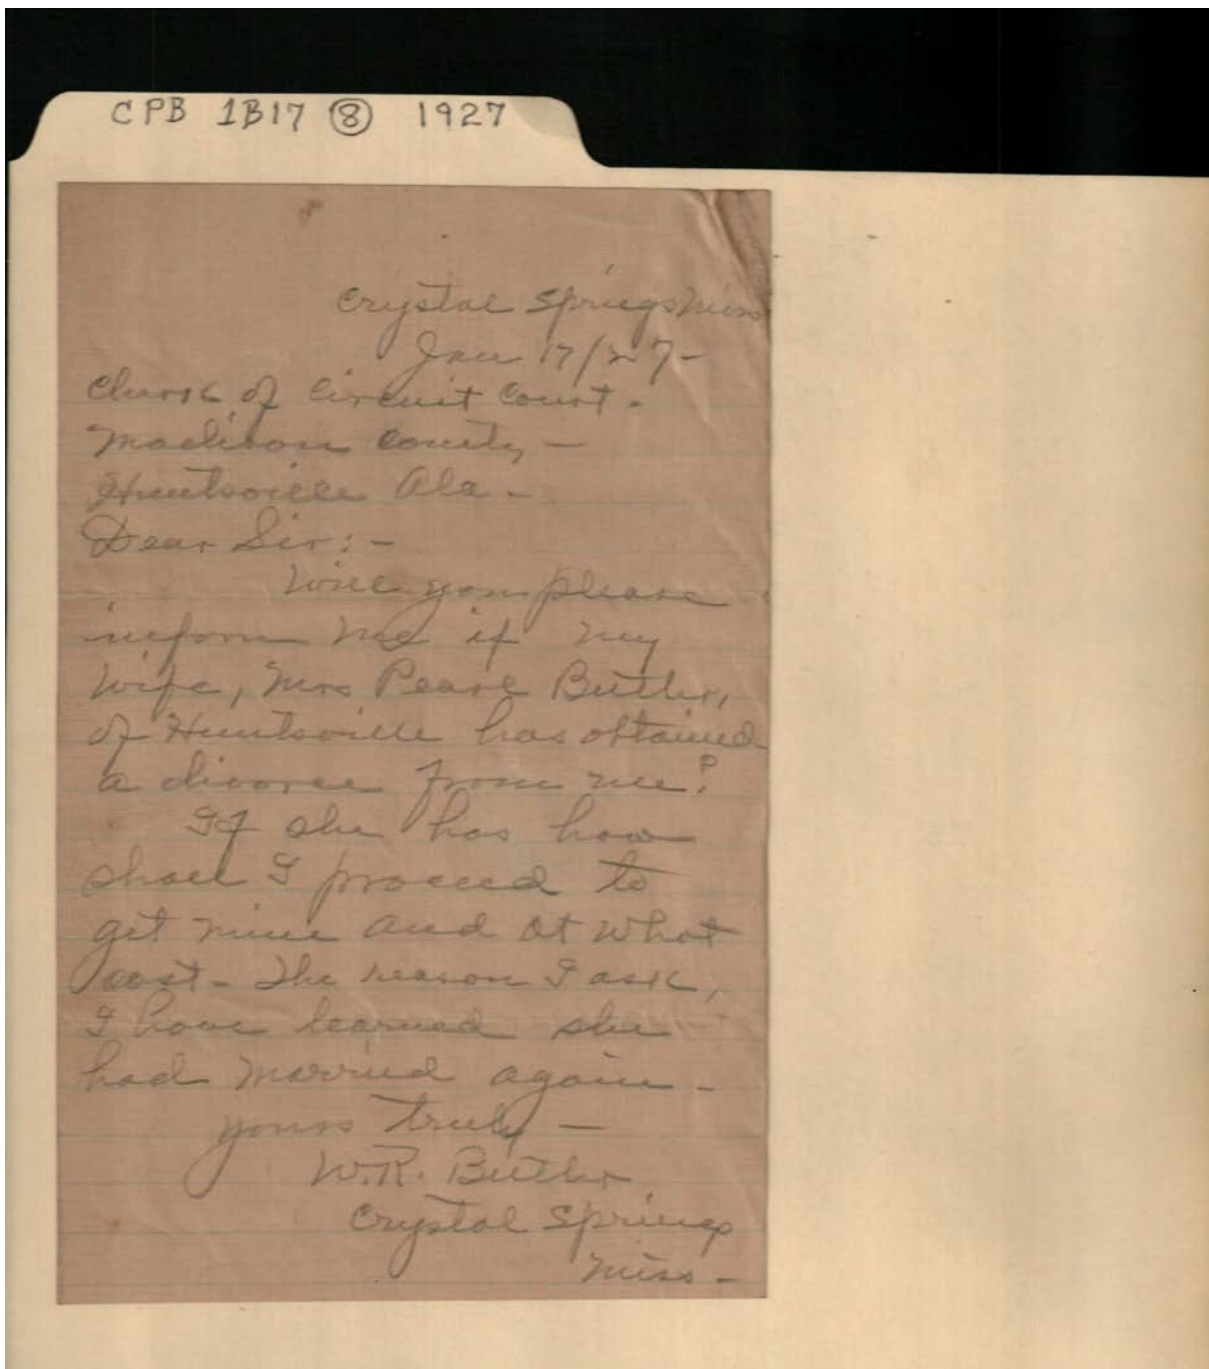 CPB 1B17 ⑧ 1927
Crystal Springs Miss
Jan 17/27-
Clerk of Circuit Court-
Madison County-
Huntsville Ala-
Dear Sir:-
Will you please
inform me if my
Wife, Mrs Pearl Butler,
of Huntsville has obtained
a divorce from me?
If she has how
shall I proceed to
get mine and at what
cost- The reason I ask,
I have learned she
had married again-
yours truly-
W.R. Butler
Crystal Springs
Miss-